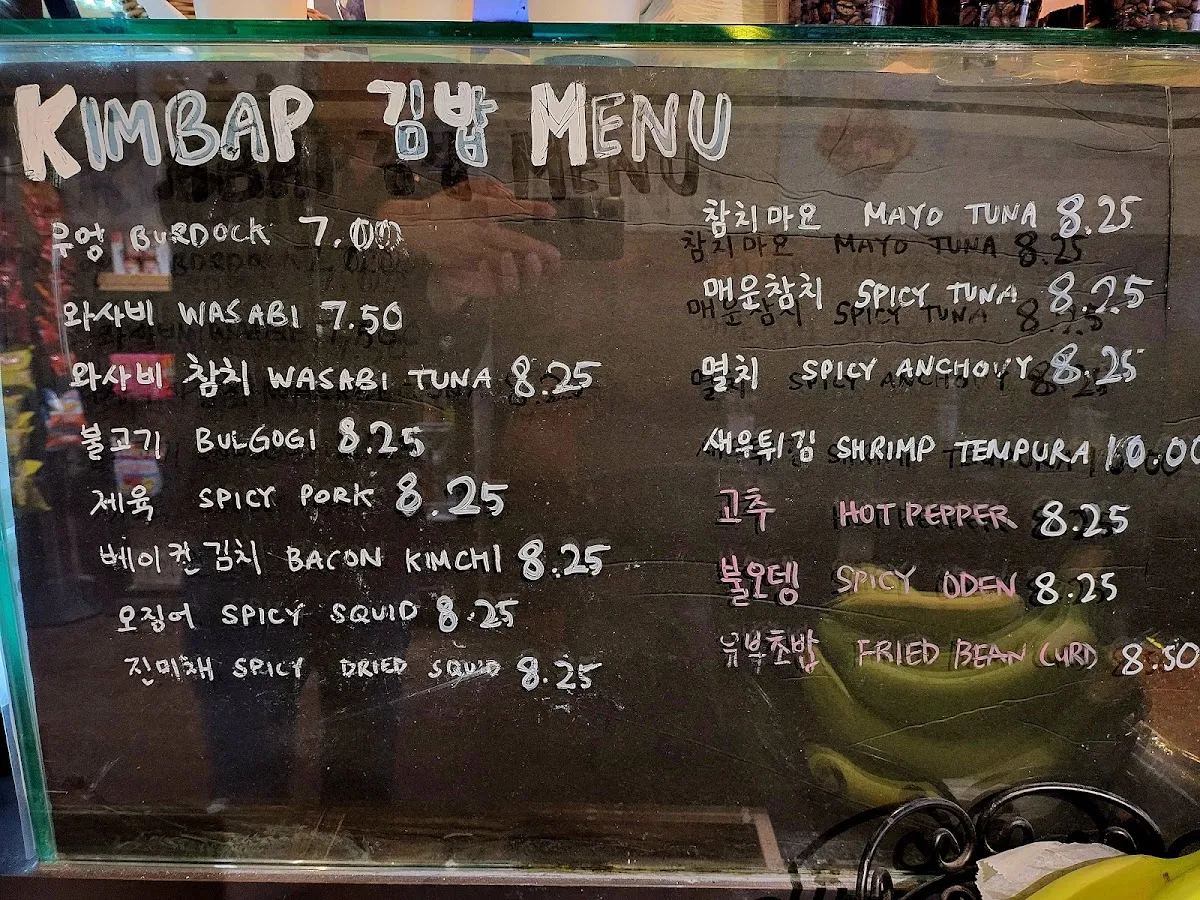 KIMBAP 김밥 MENU
우엉 BURDOCK 7.00
와사비 WASABI 7.50
와사비 참치 WASABI TUNA 8.25
불고기 BULGOGI 8.25
제육 SPICY PORK 8.25
베이컨김치 BACON KIMCHI 8.25
오징어 SPICY SQUID 8.25
진미채 SPICY DRIED SQUID 8.25
참치마요 MAYO TUNA 8.25
매운참치 SPICY TUNA 8.25
멸치 SPICY ANCHOVY 8.25
새우튀김 SHRIMP TEMPURA 10.00
고추 HOT PEPPER 8.25
불오뎅 SPICY ODEN 8.25
유부초밥 FRIED BEAN CURD 8.50